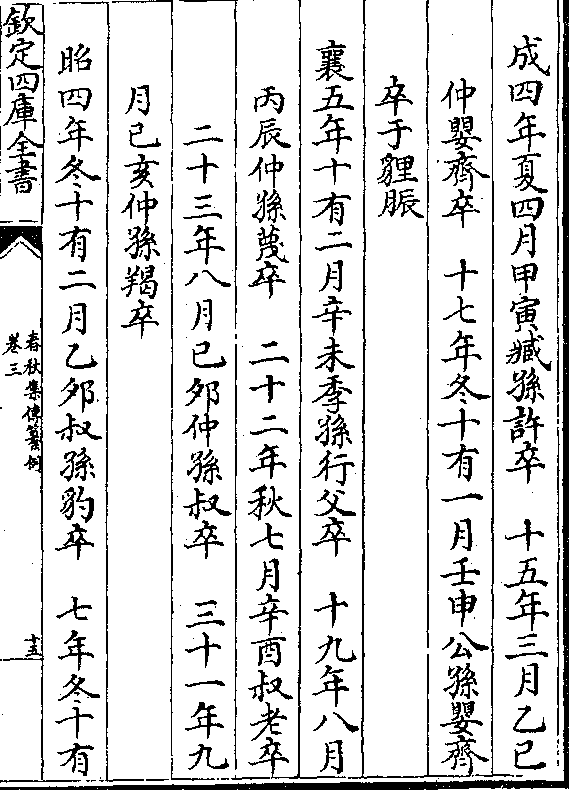 成四年夏四月甲寅臧孫許卒　十五年三月乙巳
仲嬰齊卒　十七年冬十有一月壬申公孫嬰齊
卒于貍脤
襄五年十有二月辛未季孫行父卒　十九年八月
丙辰仲孫蔑卒　二十二年秋七月辛酉叔老卒
二十三年八月己卯仲孫叔卒　三十一年九
月己亥仲孫羯卒
昭四年冬十有二月乙卯叔孫豹卒　七年冬十有
欽定四庫全書
春秋集傳纂例
卷三
十五